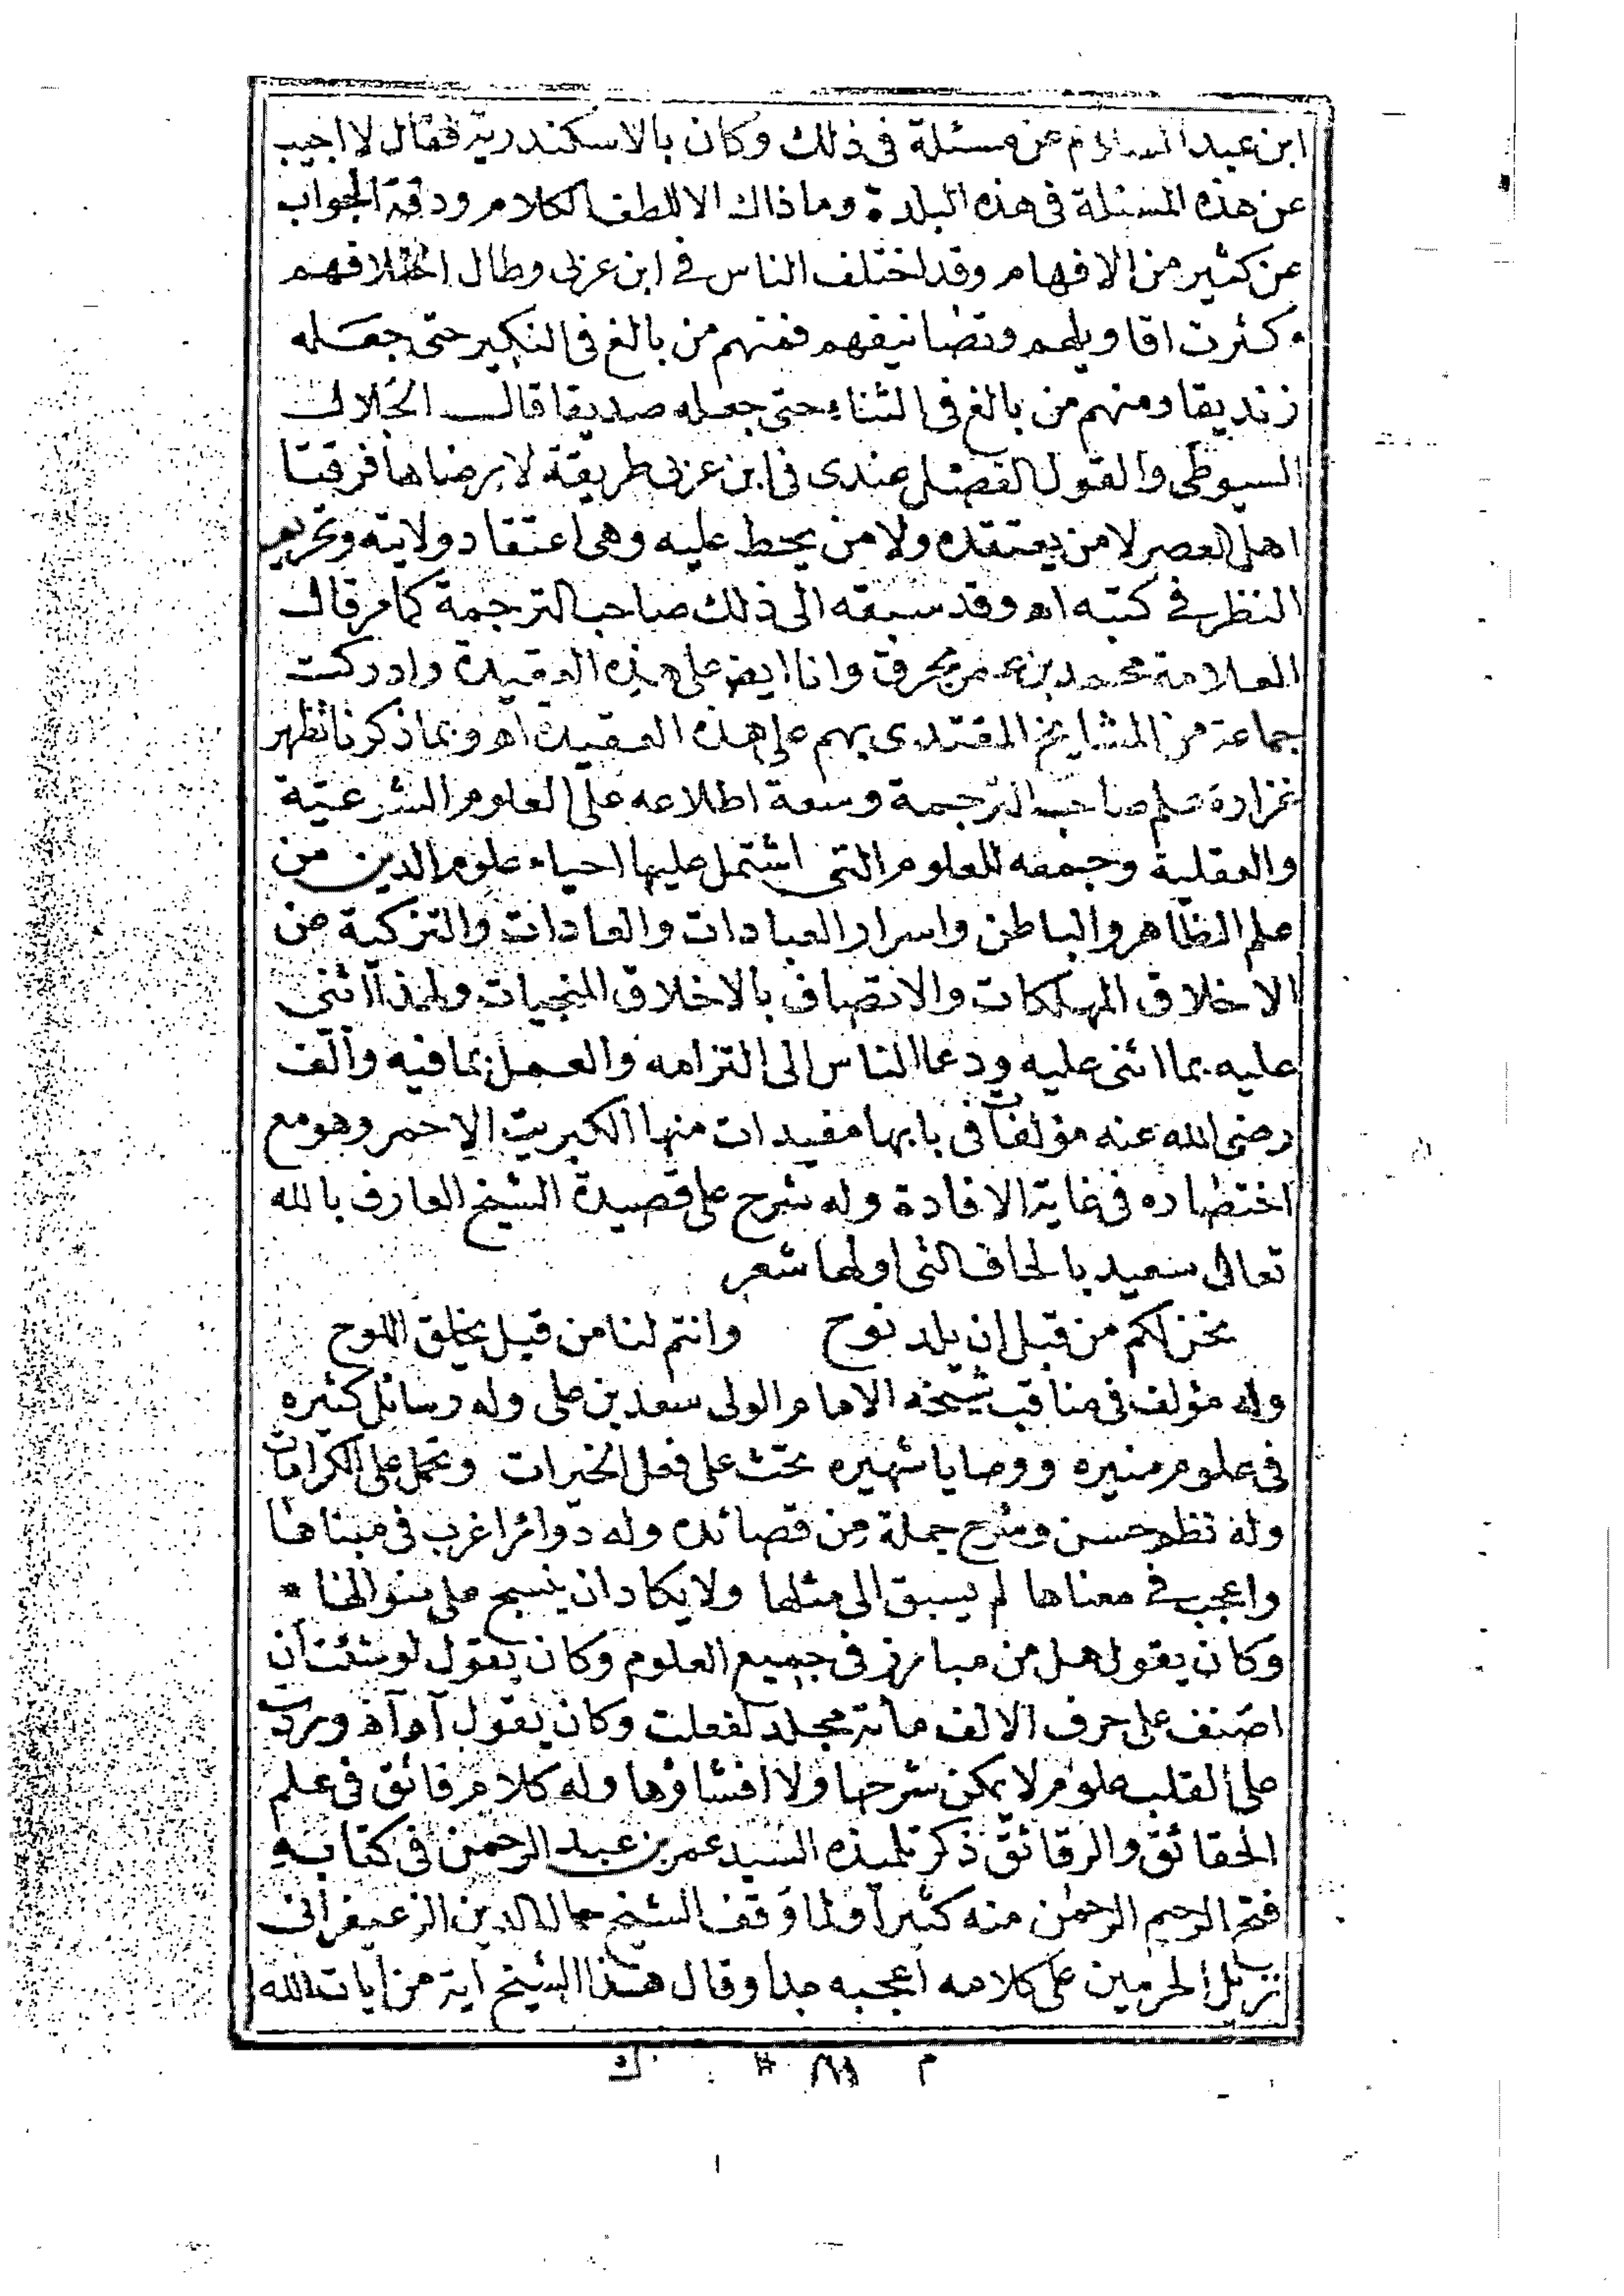 ابن عبد السلام عن مسئلة فى ذلك وكان بالاسكندرية فقال لا اجيب
عن هذه المسئلة فى هذه البلدة وما ذاك الا للطف الكلام ودقة الجواب
عن كثير من الافهام وقد اختلف الناس فى ابن عربى وطال اختلافهم
وكثرت اقاويلهم وتصانيفهم فمنهم من بالغ فى النكير حتى جعله
زنديقا ومنهم من بالغ فى الثناء حتى جعله صديقا قال الجلال
السيوطى والقول الفصل عندى فى ابن عربى طريقة لا يرضاها فرقتا
اهل العصر لا من يعتقده ولا من يحط عليه وهى اعتقاد ولايته وتحريم
النظر فى كتبه اه وقد سبقه الى ذلك صاحب الترجمة كما مر قال
العلامة محمد بن عمر بحرق وانا ايض على هذه العقيدة وادركت
جماعة من المشايخ المقتدى بهم على هذه العقيدة اه وبما ذكرنا تظهر
غزارة علم صاحب الترجمة وسعة اطلاعه على العلوم الشرعية
والعقلية وجمعه للعلوم التى اشتمل عليها احياء علوم الدين من
علم الظاهر والباطن واسرار العبادات والعادات والتزكية من
الاخلاق المهلكات والاتصاف بالاخلاق المنجيات ولهذا اثنى
عليه بما اثنى عليه ودعا الناس الى التزامه والعمل بما فيه وألف
رضى الله عنه مؤلفات فى بابها مفيدات منها الكبريت الاحمر وهو مع
اختصاره فى غاية الافادة وله شرح على قصيدة الشيخ العارف بالله
تعالى سعيد بالحاف التى اولها شعر
نحن لكم من قبل ان يلد نوح    وانتم لنا من قبل يخلق اللوح
وله مؤلف فى مناقب شيخه الامام الولى سعد بن على وله رسائل كثيره
فى علوم منيره ووصايا شهيره تحث على فعل الخيرات وتحمل على الكرامات
وله نظم حسن وشرح جملة من قصائده وله دوائر اغرب فى مبناها
واعجب فى معناها لم يسبق الى مثلها ولا يكاد ان ينسج على منوالها *
وكان يقول هل من مبارز فى جميع العلوم وكان يقول لو شئت ان
اصنف على حرف الالف مائة مجلد لفعلت وكان يقول آه آه ورد
على القلب علوم لا يمكن شرحها ولا افشاؤها وله كلام فائق فى علم
الحقائق والرقائق ذكر تلميذه السيد عمر بن عبد الرحمن فى كتابه
فتح الرحيم الرحمن منه كثيرا ولما وقف الشيخ جمال الدين الزعيفرانى
نزيل الحرمين على كلامه اعجبه جدا وقال هذا الشيخ آية من آيات الله